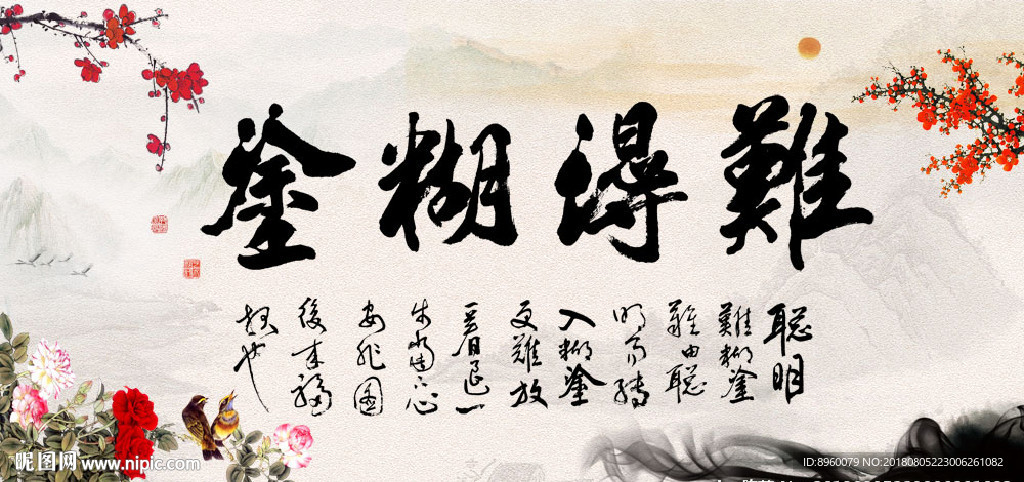 難得糊塗
聰明
難糊塗
難由聰
明而轉
入糊塗
更難放
一著退一
步當下心
安非圖
後来福
报也
昵图网 www.nipic.com
ID:8960079 NO:20180805223006261082